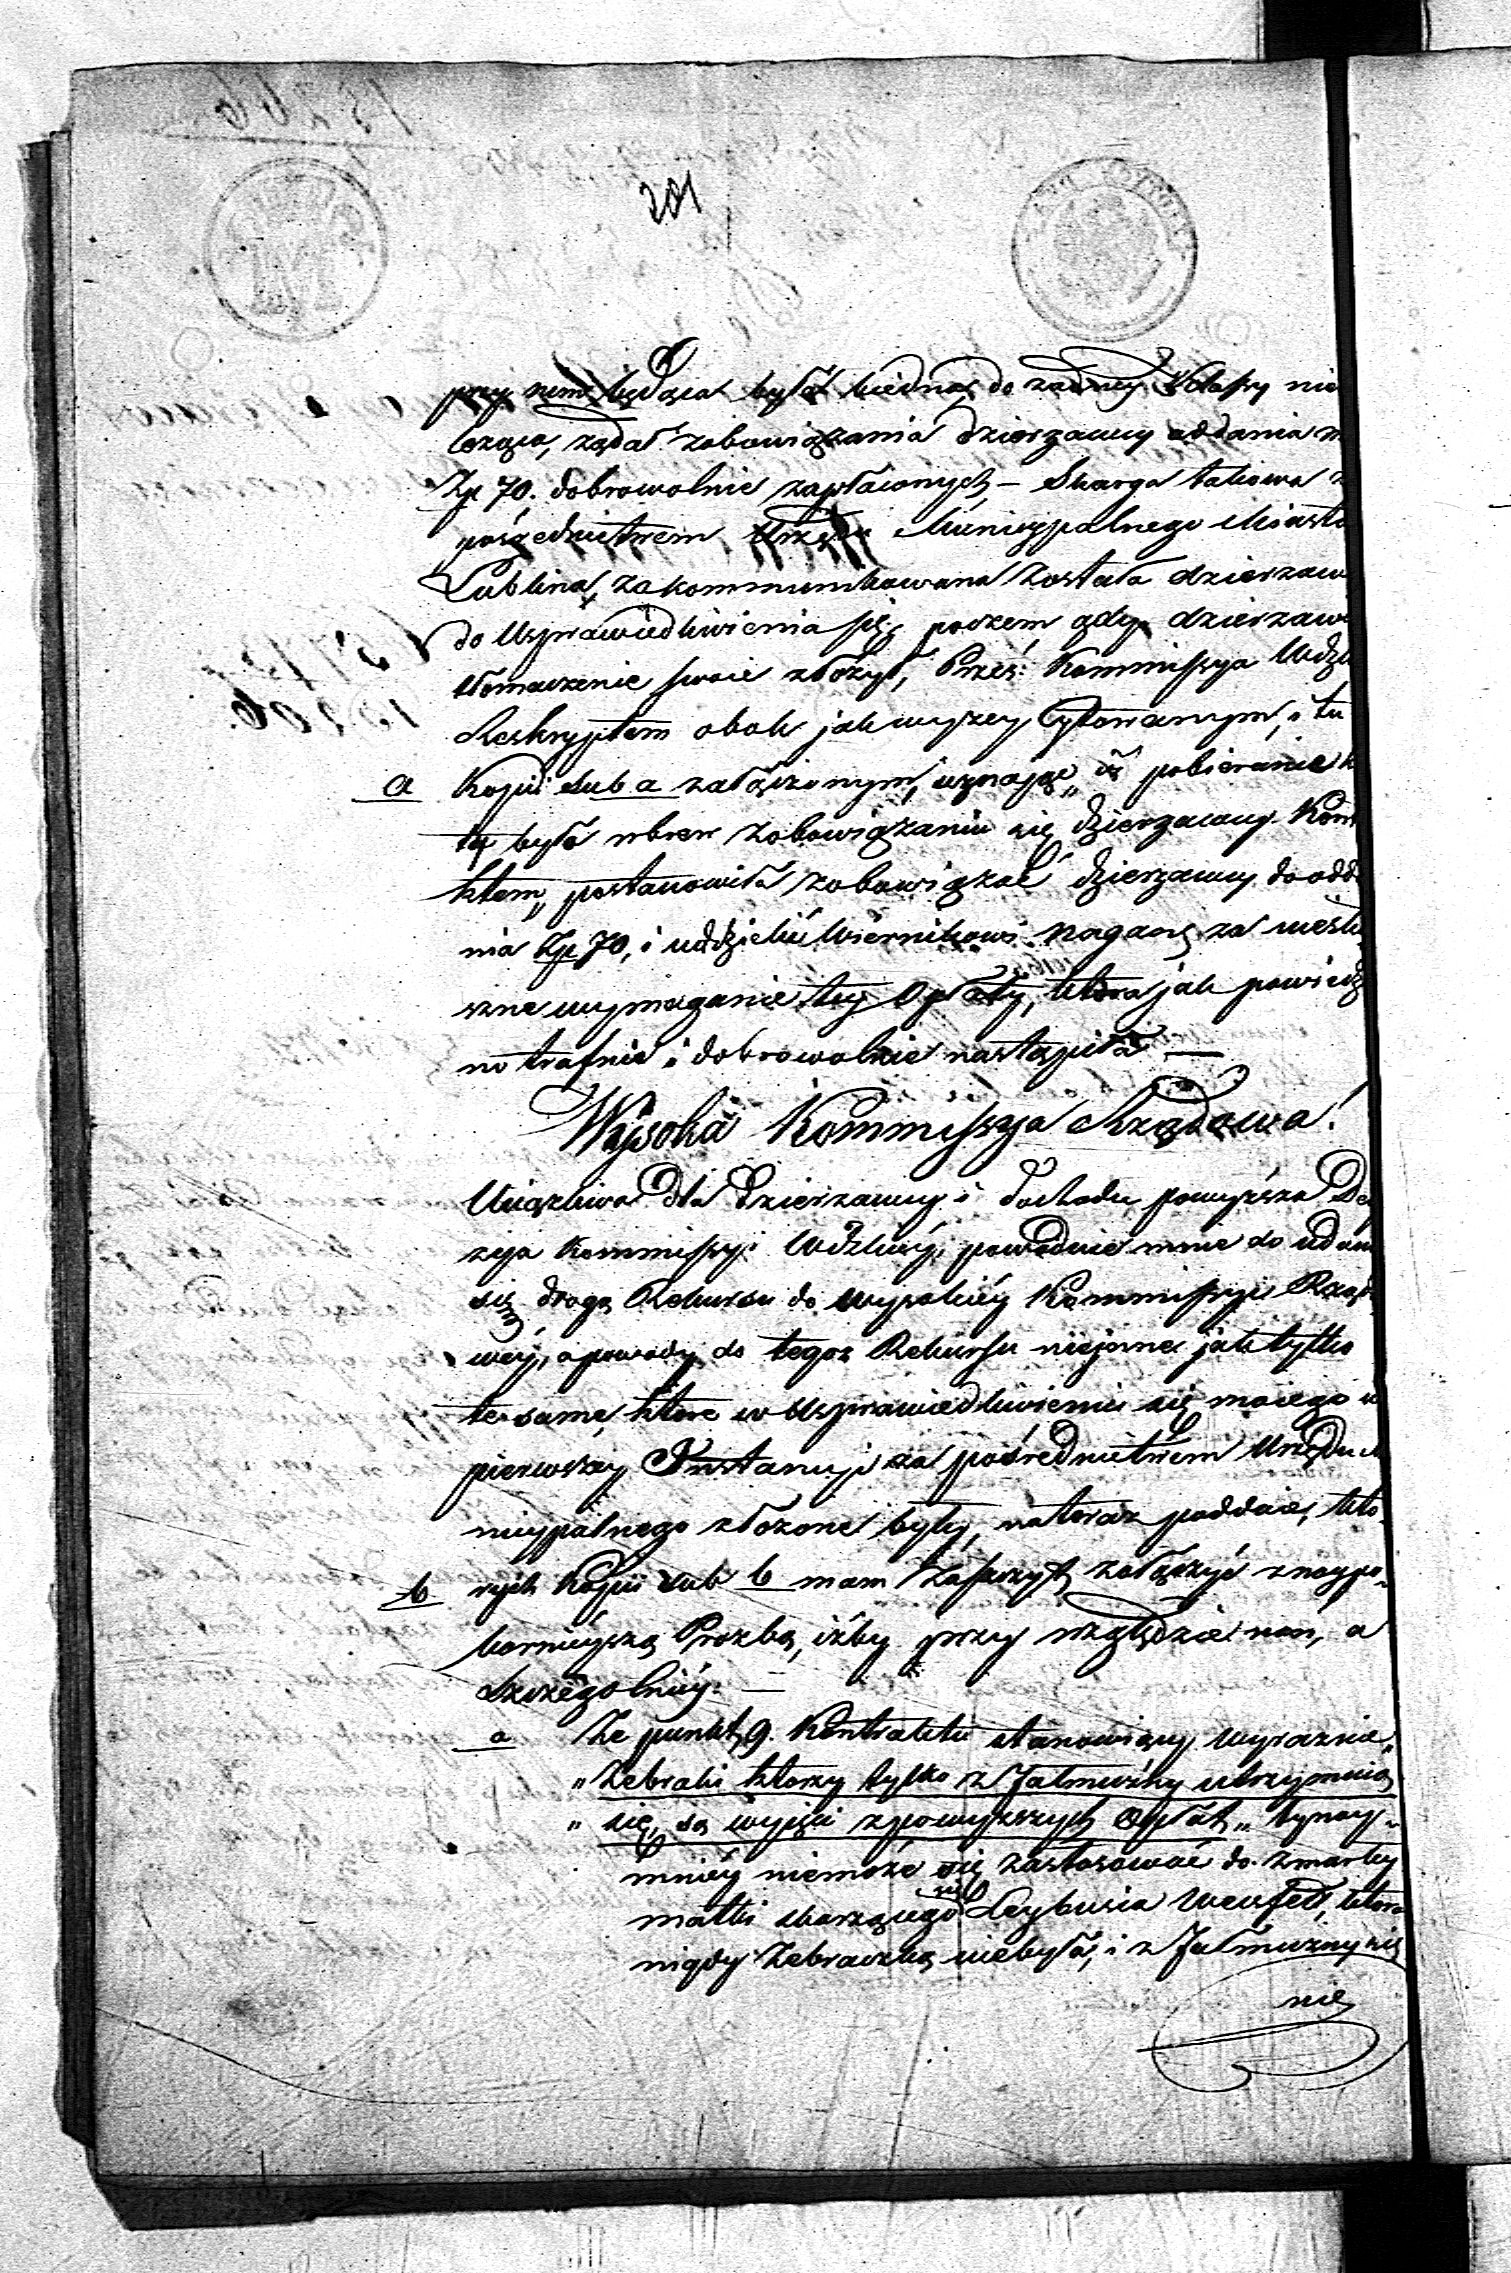 201
przy nim będąca była biedną, do żadney Klassy nie
leżąca, żądał zobowiązania dzierżawcy oddania
Zp 70. dobrowolnie zapłaconych, – Skarga takowa
pośrednictwem Urzędu Municypalnego Miasta
Lublina, zakommunikowana została dzierżaw
do Usprawiedliwienia się, poczem gdy dzierżaw
tłomaczenie swoie złożył, Prześ: Kommissya Wdzka
Reskryptem obok jak wyzey Cytowanym, i tu
a Kopii sub a załączonym, uznając „iż pobieranie
ty było wbrew zobowiązaniu się dzierzawcy Kont
ktem„ postanowiła zobowiązać dzierzawcy do odda
nia Zp 70, i udzielić Wiernikowi naganę za niesłu
szne wymaganie tey Opłaty, która jak powiedz
no trafnie i dobrowolnie nastąpiła —
Wysoka Kommissya Rządowa!
Uciążliwa dla Dzierżawcy i dochodu powyższa De
zya Kommissyi Wdzkiéy, powoduie mnie do udan
się drogą Rekursu do Wysokiéy Kommissyi Rządo
wéy, a powody do tegoż Rekursu nieinne jak tylko
te same, które w Usprawiedliwieniu się moiego w
pierwszey Instancyi za pośrednictwem Urzędu
nicypalnego złożone były, na teraz poddaię, któ
b rych Kopii sub b mam zaszczyt załączyć z naypo-
korniéyszą Prozbą, iżby przy względzie nań, a
Szczegolniéy. —
a Że punkt 9. Kontraktu stanowiący wyraznie„
„Żebraki ktorzy tylko z Jałmużny utrzymuią
„się, są wyięci z powyższych Opłat„ bynay-
mniéy niemoże się zastosować do zmarłey
matki skarżącego się Leybusia Weisfelt, ktora
nigdy Żebraczką niebyła, i z Jałmużny się
nie